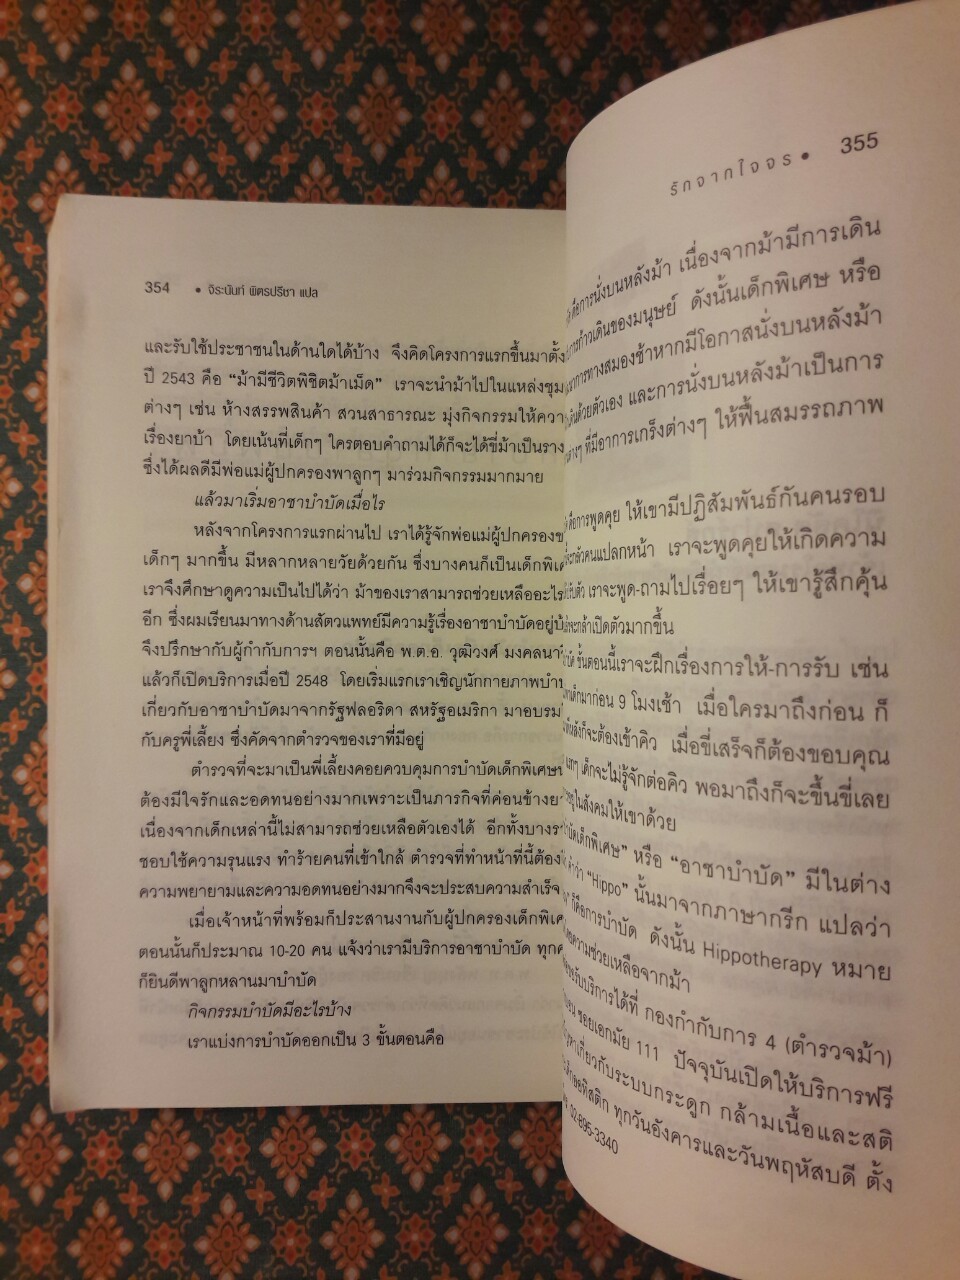 354 • จิระนันท์ พิตรปรีชา แปล
และรับใช้ประชาชนในด้านใดได้บ้าง จึงคิดโครงการแรกขึ้นมาตั้ง
ปี 2543 คือ “ม้ามีชีวิตพิชิตม้าเม็ด” เราจะนำม้าไปในแหล่งชุม
ต่างๆ เช่น ห้างสรรพสินค้า สวนสาธารณะ มุ่งกิจกรรมให้ความ
เรื่องยาบ้า โดยเน้นที่เด็กๆ ใครตอบคำถามได้ก็จะได้ขี่ม้าเป็นราง
ซึ่งได้ผลดีมีพ่อแม่ผู้ปกครองพาลูกๆ มาร่วมกิจกรรมมากมาย
แล้วมาเริ่มอาชาบำบัดเมื่อไร
หลังจากโครงการแรกผ่านไป เราได้รู้จักพ่อแม่ผู้ปกครองข
เด็กๆ มากขึ้น มีหลากหลายวัยด้วยกัน ซึ่งบางคนก็เป็นเด็กพิเศ
เราจึงศึกษาดูความเป็นไปได้ว่า ม้าของเราสามารถช่วยเหลืออะไร
อีก ซึ่งผมเรียนมาทางด้านสัตวแพทย์มีความรู้เรื่องอาชาบำบัดอยู่บ้
จึงปรึกษากับผู้กำกับการฯ ตอนนั้นคือ พ.ต.อ. วุฒิวงศ์ มงคลนา
แล้วก็เปิดบริการเมื่อปี 2548 โดยเริ่มแรกเราเชิญนักกายภาพบำบ
เกี่ยวกับอาชาบำบัดมาจากรัฐฟลอริดา สหรัฐอเมริกา มาอบรม
กับครูพี่เลี้ยง ซึ่งคัดจากตำรวจของเราที่มีอยู่
ตำรวจที่จะมาเป็นพี่เลี้ยงคอยควบคุมการบำบัดเด็กพิเศษ
ต้องมีใจรักและอดทนอย่างมากเพราะเป็นภารกิจที่ค่อนข้างย
เนื่องจากเด็กเหล่านี้ไม่สามารถช่วยเหลือตัวเองได้ อีกทั้งบางร
ชอบใช้ความรุนแรง ทำร้ายคนที่เข้าใกล้ ตำรวจที่ทำหน้าที่นี้ต้อง
ความพยายามและความอดทนอย่างมากจึงจะประสบความสำเร็จ
เมื่อเจ้าหน้าที่พร้อมก็ประสานงานกับผู้ปกครองเด็กพิเศ
ตอนนั้นก็ประมาณ 10-20 คน แจ้งว่าเรามีบริการอาชาบำบัด ทุก
ก็ยินดีพาลูกหลานมาบำบัด
กิจกรรมบำบัดมีอะไรบ้าง
เราแบ่งการบำบัดออกเป็น 3 ขั้นตอนคือ
รักจากใจจร • 355
คือการนั่งบนหลังม้า เนื่องจากม้ามีการเดิน
การก้าวเดินของมนุษย์ ดังนั้นเด็กพิเศษ หรือ
การทางสมองช้าหากมีโอกาสนั่งบนหลังม้า
เดินด้วยตัวเอง และการนั่งบนหลังม้าเป็นการ
ต่างๆ ที่มีอาการเกร็งต่างๆ ให้ฟื้นสมรรถภาพ
คือการพูดคุย ให้เขามีปฏิสัมพันธ์กันคนรอบ
กลัวคนแปลกหน้า เราจะพูดคุยให้เกิดความ
เราจะพูด-ถามไปเรื่อยๆ ให้เขารู้สึกคุ้น
จะกล้าเปิดตัวมากขึ้น
ขั้นตอนนี้เราจะฝึกเรื่องการให้-การรับ เช่น
เด็กมาก่อน 9 โมงเช้า เมื่อใครมาถึงก่อน ก็
หลังก็จะต้องเข้าคิว เมื่อขี่เสร็จก็ต้องขอบคุณ
แรกๆ เด็กจะไม่รู้จักต่อคิว พอมาถึงก็จะขึ้นขี่เลย
อยู่ในสังคมให้เขาด้วย
บำบัดเด็กพิเศษ” หรือ “อาชาบำบัด” มีในต่าง
คำว่า “Hippo” นั้นมาจากภาษากรีก แปลว่า
ก็คือการบำบัด ดังนั้น Hippotherapy หมาย
ความช่วยเหลือจากม้า
รับบริการได้ที่ กองกำกับการ 4 (ตำรวจม้า)
ซอยเอกมัย 111 ปัจจุบันเปิดให้บริการฟรี
เกี่ยวกับระบบกระดูก กล้ามเนื้อและสติ
เด็กออทิสติก ทุกวันอังคารและวันพฤหัสบดี ตั้ง
02-895-3340